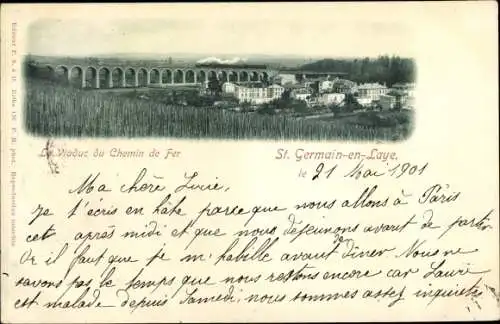 Le Viaduc du Chemin de Fer
St. Germain-en-Laye,
le 21 Mai 1901
Ma chère Lucie,
Je t'écris en hâte parceque nous allons à Paris
cet après midi et que nous déjeunons avant de partir
Or il faut que je m'habille avant dîner. Nous ne
savons pas le temps que nous restons encore car Laure
est malade depuis Samedi, nous sommes assez inquiets